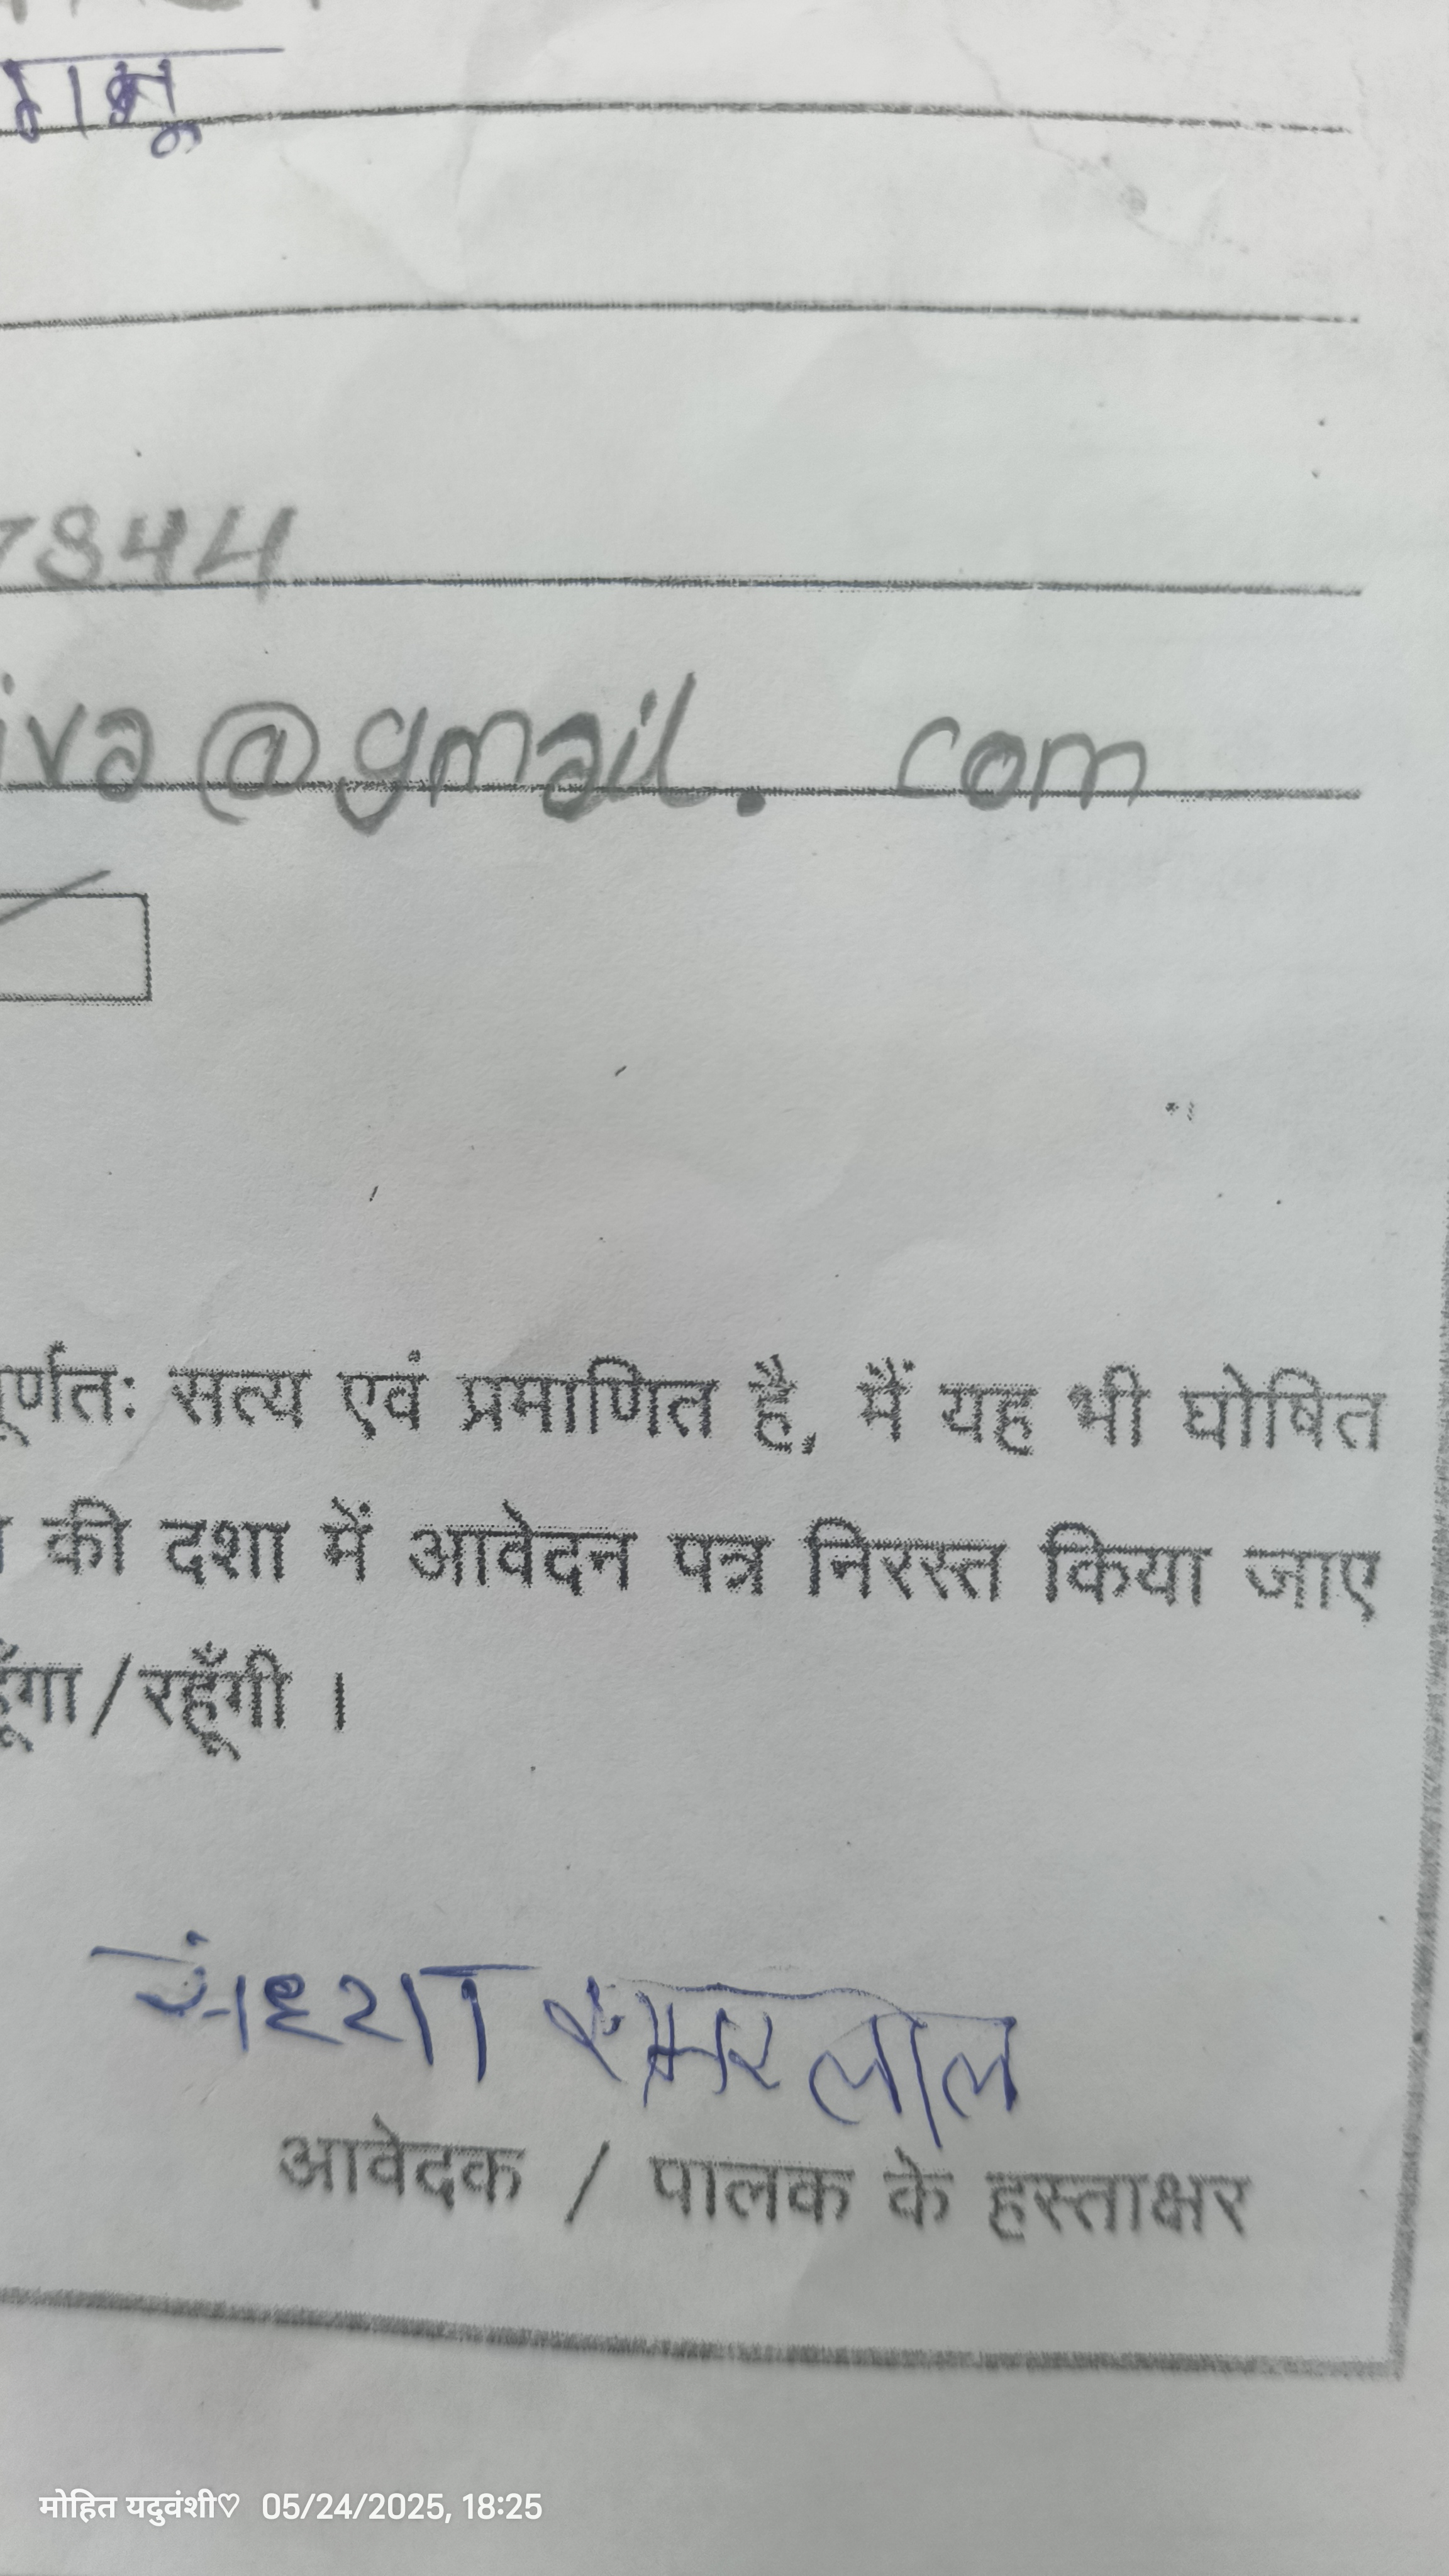 7844
iva@gmail. com
पूर्णतः सत्य एवं प्रमाणित है, मैं यह भी घोषित
की दशा में आवेदन पत्र निरस्त किया जाए
हूँगा/रहूँगी ।
लाल
आवेदक / पालक के हस्ताक्षर
मोहित यदुवंशी♡ 05/24/2025, 18:25